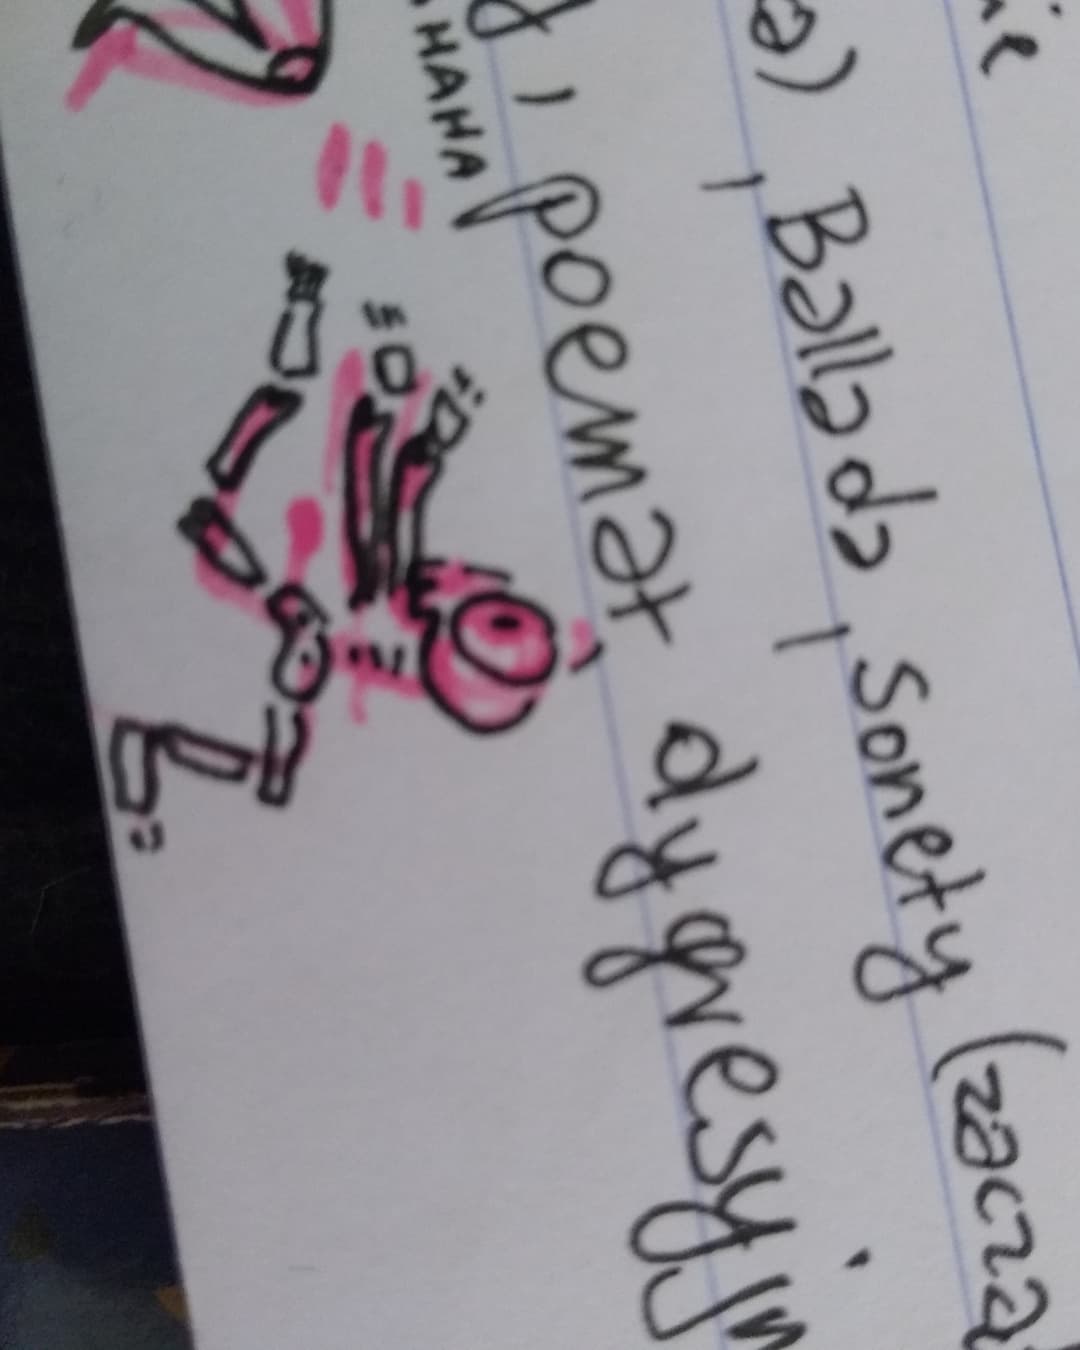 a), Ballada, sonety (zacza
, poemat dygresyjn
HAHA